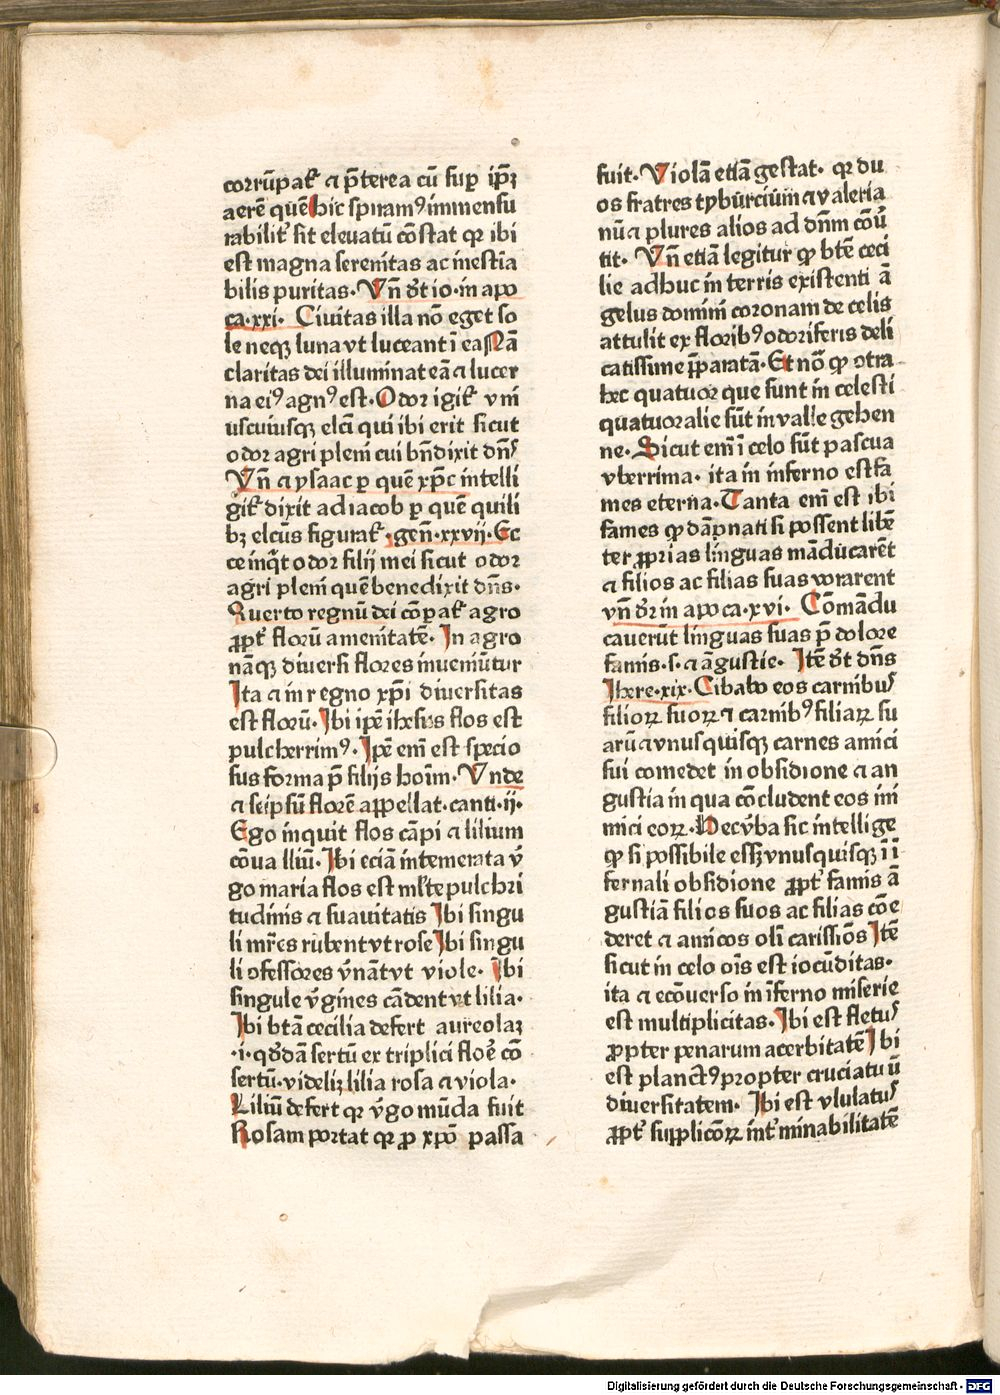 corrūpat᷑ ⁊ p̄terea cū sup ip̄ꝫ
aerē quē hic spiramꝰ immensu
rabilit᷑ sit eleuatū cōstat qꝛ ibi
est magna serenitas ac inestīa
bilis puritas. Vn̄ dt̄ io. in apo
ca. xxi. Ciuitas illa nō eget so
le neqꝫ luna vt luceant ī ea Nā
claritas dei illuminat eā ⁊ lucer
na eiꝰ agnꝰ est. Odor igit᷑ vni
uscuiusqꝫ elc̄i qui ibi erit sicut
odor agri pleni cui bn̄dixit dn̄s
Vn̄ ⁊ ysaac ꝑ quē xp̄c intelli
git᷑ dixit ad iacob ꝑ quē quili
bꝫ elcūs figurat᷑. gen̄. xxvij. Ec
ce inq̇t odor filij mei sicut odor
agri pleni quē benedixit dn̄s.
Auerto regnū dei cōꝑat᷑ agro
ꝓpt᷑ florū amenitatē. In agro
nāqꝫ diuersi flores inueniūtur
Ita ⁊ in regno xp̄i diuersitas
est florū. Ibi ip̄e ihesus flos est
pulcherrimꝰ. Ip̄e eni est specio
sus forma p̄ filijs hoīm. Vnde
⁊ seipsū florē appellat. canti. ij.
Ego inquit flos cāpi ⁊ lilium
cōuallīū. Ibi eciā intemerata v̄
go maria flos est ml̄te pulchri
tudinis ⁊ suauitatis Ibi singu
li mr̄es rubent vt rose Ibi singu
li ꝯfessores v̄nāt vt viole. Ibi
singule v̄gines cādent vt lilia.
Ibi btā cecilia defert aureolaꝫ
.i. qddā sertū ex triplici floē cō
sertū. videlicꝫ lilia rosa ⁊ viola.
Liliū defert qꝛ v̄go mūda fuit
Rosam portat qꝛ ꝓ xp̄o passa
fuit. Violā etiā gestat. qꝛ du
os fratres tyburciūm ⁊ valeria
nū ⁊ plures alios ad dn̄m cōu̇
tit. Vn̄ etiā legitur ꝙ btē ceci
lie adhuc in terris existenti ā
gelus domini coronam de celis
attulit ex floribꝰ odoriferis deli
catissime p̄paratā. Et nō ꝙ ꝯtra
hec quatuor que sunt in celesti
quatuor alie sūt in valle gehen
ne. Sicut eni ī celo sūt pascua
vberrima. ita in inferno est fa
mes eterna. Tanta eni est ibi
fames ꝙ dāpnati si possent libē
ter ꝓprias linguas māducarēt
⁊ filios ac filias suas vorarent
vn̄ dr̄ in apoca. xvi. Cōmādu
cauerūt linguas suas p̄ dolore
famis. s. ⁊ āgustie. Itē dt̄ dn̄s
Ihere. xix. Cibabo eos carnibuꝰ
filioꝝ suoꝝ ⁊ carnibꝰ filiaꝝ su
arū ⁊ vnusquisqꝫ carnes amici
sui comedet in obsidione ⁊ an
gustia in qua cōcludent eos ini
mici eoꝝ. Hec v̄ba sic intellige
ꝙ si possibile essꝫ vnusquisqꝫ īi
fernali obsidione ꝓpt᷑ famis ā
gustiā filios suos ac filias cōe
deret ⁊ amicos oli carissiōs Itē
sicut in celo oīs est iocūditas.
ita ⁊ ecōuerso in īferno miserie
est multiplicitas. Ibi est fletuꝰ
ꝓpter penarum acerbitatē Ibi
est planctꝰ propter cruciatuū
diuersitatem. Ibi est vlulatuꝰ
ꝓpt᷑ supplicōꝝ int᷑minabilitatē
Digitalisierung gefördert durch die Deutsche Forschungsgemeinschaft - DFG